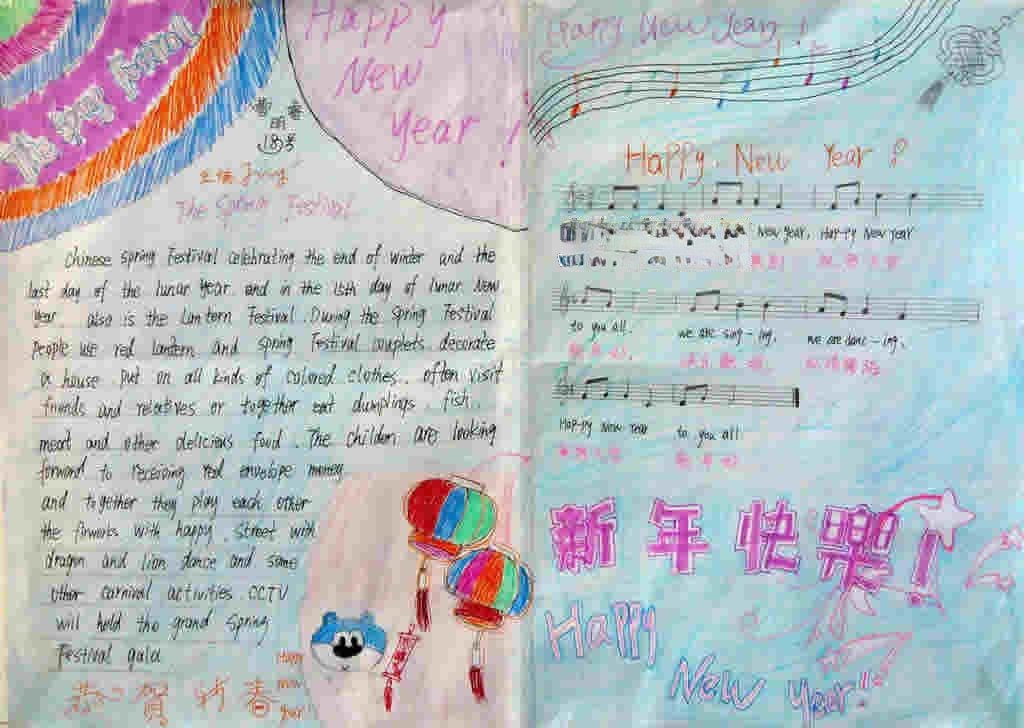 The Spring Festival
Happy
New
Year !
18号
The Spring Festival
Chinese spring Festival celebrating the end of winter and the
last day of the lunar year. and in the 15th day of lunar New
Year also is the Lantern Festival. During the Spring Festival
People use red lantern and Spring Festival couplets decorate
a house put on all kinds of colored clothes, often visit
friends and relatives or together eat dumplings, fish,
meat and other delicious food. The children are looking
forward to receiving red envelope money
and together they play each other
the fireworks with happy, street with
dragon and lion dance and some
other carnival activities. CCTV
will hold the grand Spring
Festival gala
恭 賀 新 春
Happy
new
year!
Happy New Year !
Happy New Year !
New year, Hap-py New Year
to you all. we are sing-ing, we are danc-ing,
新年好,
Hap-py New Year to you all.
新年好
新年快樂!
Happy
New Year!